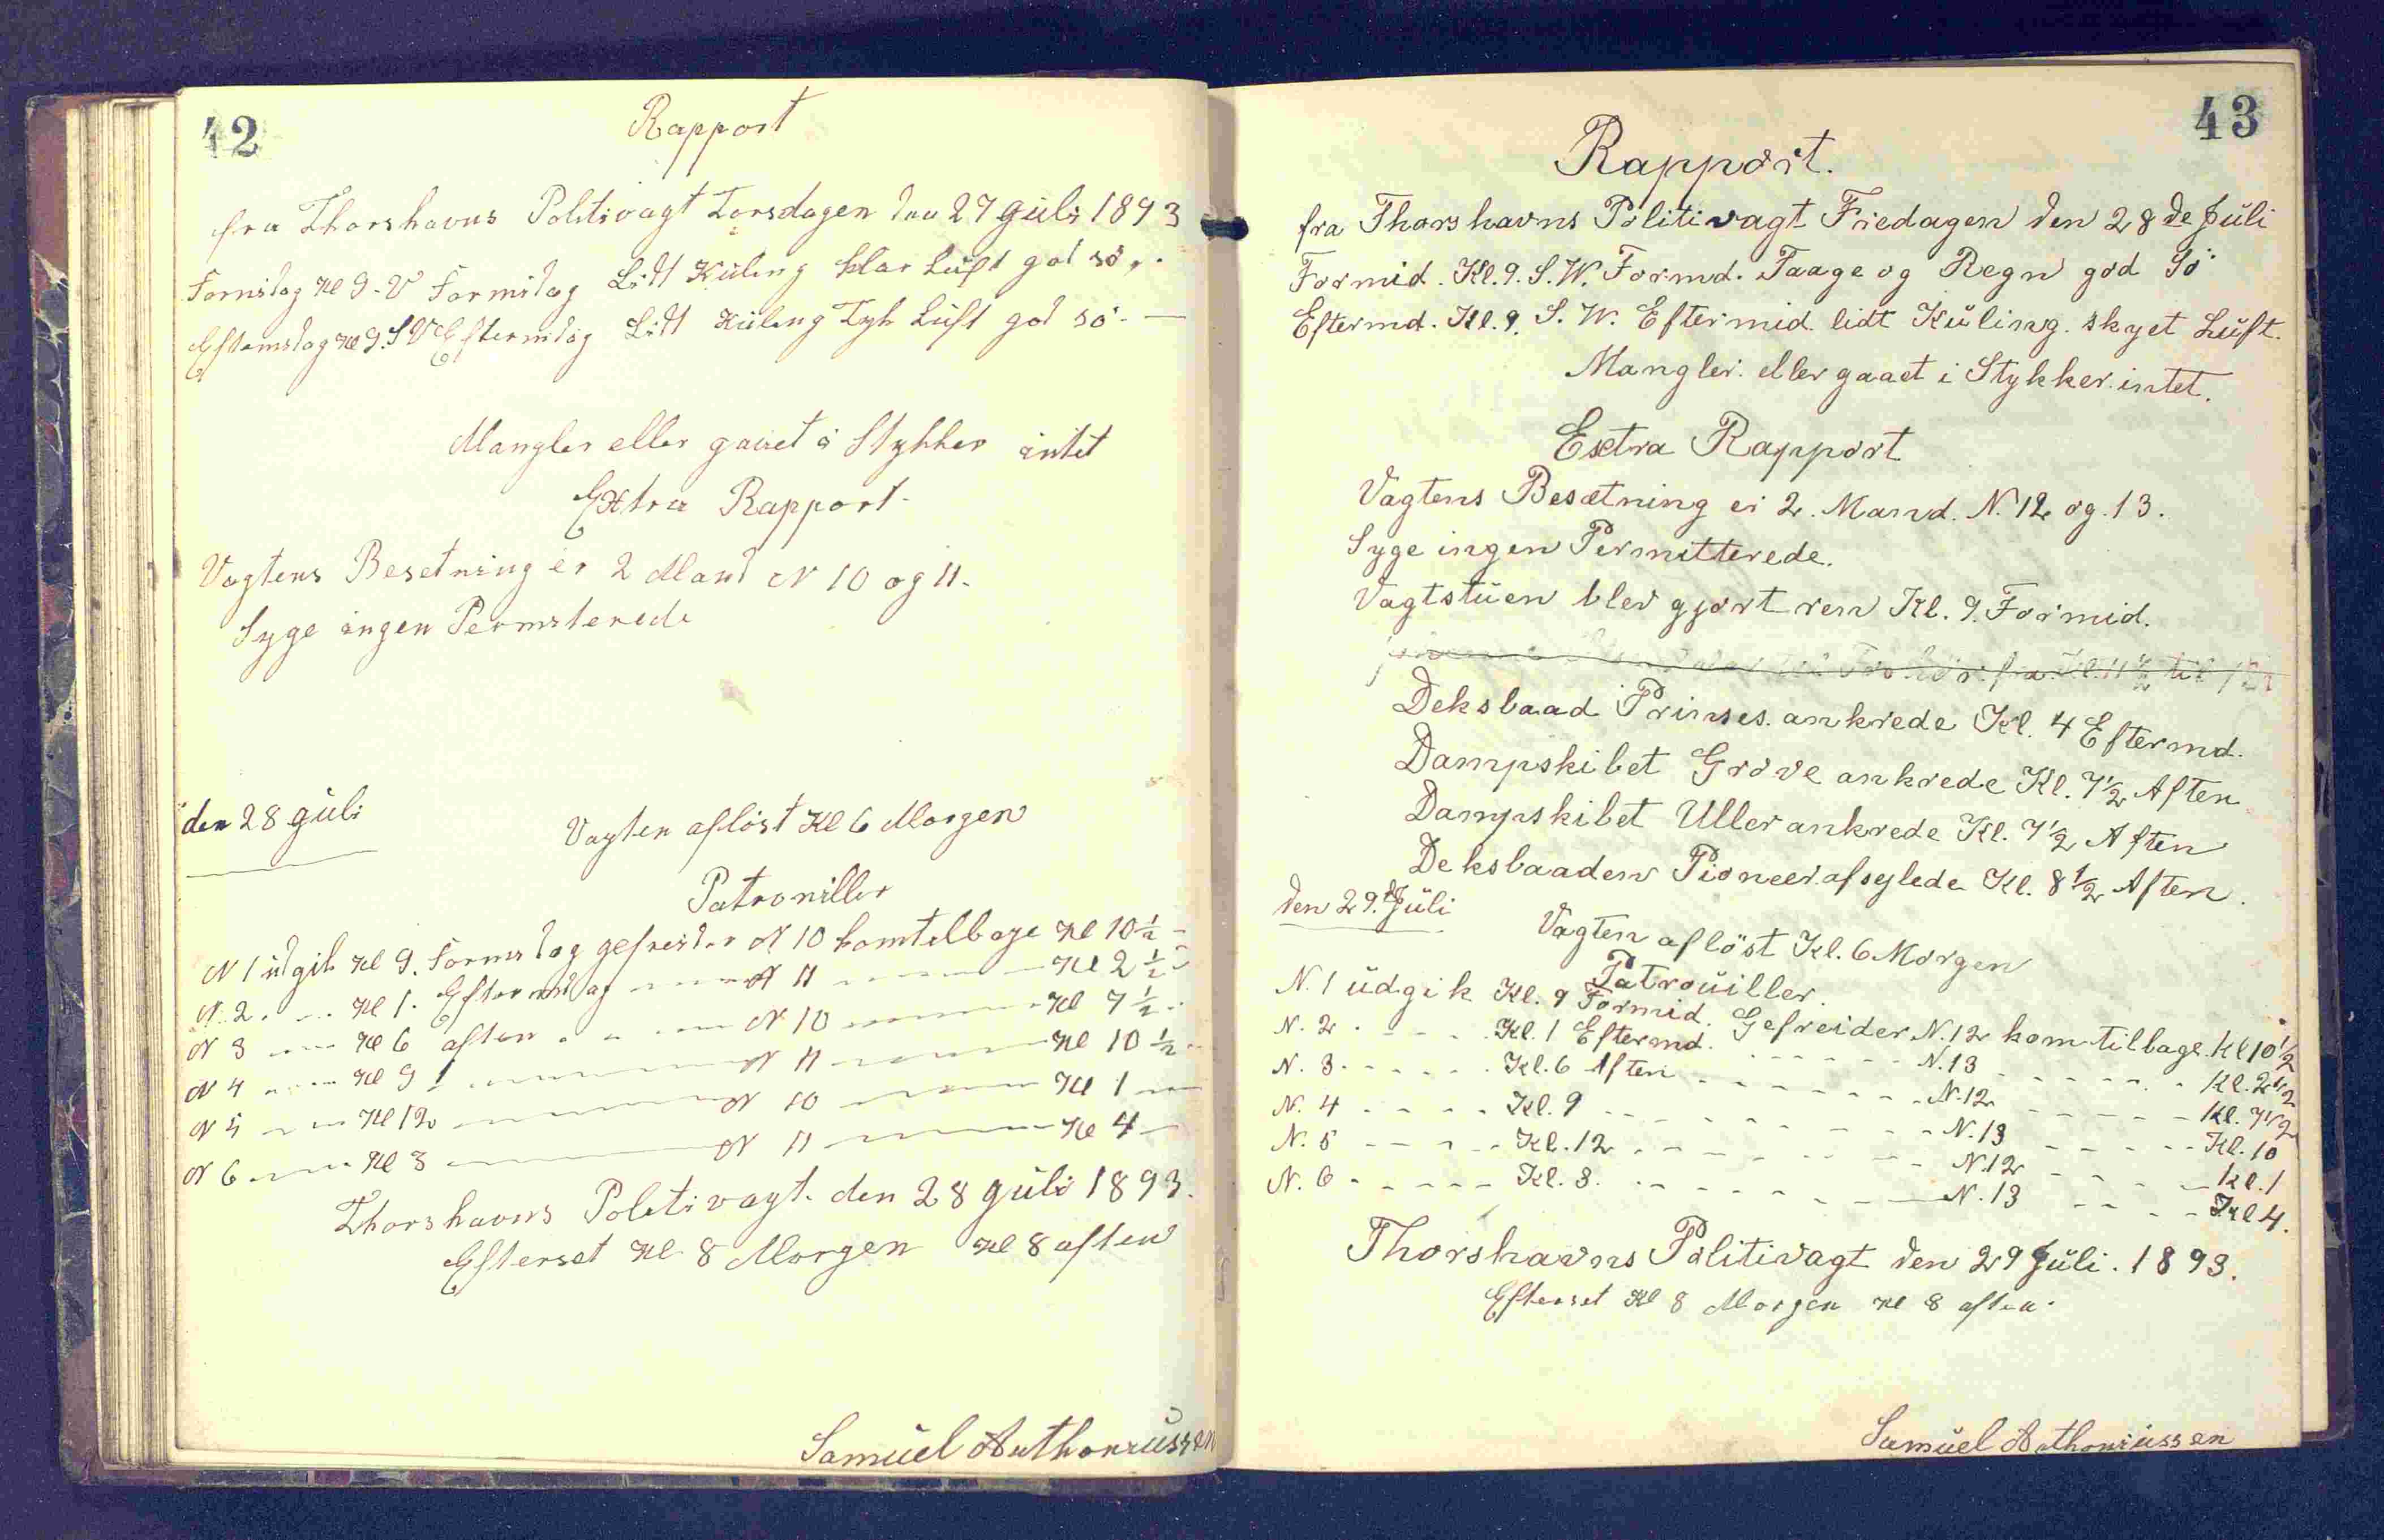 42
Rapport
fra Thorshavns Politivagt Torsdagen den 27 Juli 1893
Formidag Kl 9. V Formidag Lidt Küling klar Lüft god sö.
Eftermidag Kl 9. SV Eftermidag Lidt Küling Tyk Lüft god sö. —
Mangler eller gaaet i Stykker intet
Extra Rapport.
Vagtens Besetning er 2 Mand N 10 og 11.
Syge ingen Permiterede
den 28 Juli
Vagten aflöst Kl 6 Morgen
Patroniller
N 1 üdgik Kl 9. Formidag gefreider N 10 komtelbage Kl 10 1/2
N. 2. Kl 1. Eftermidag N 11 Kl 2 1/2
N 3 Kl 6 aften N 10 Kl 7 1/2
N 4 Kl 9 N 11 Kl 10 1/2
N 5 Kl 12 N 10 Kl 1
N 6 Kl 3 N 11 Kl 4
Thorshavns Politivagt. den 28 Juli 1893.
Efterset Kl 8 Morgen Kl 8 aften
Samüel Anthoniüssen
43
Rapport.
fra Thorshavns Politivagt Friedagen den 28de Jüli
Formid. Kl. 9. S. W. Formd. Taage og Regn god Sö
Eftermd. Kl. 9. S. W. Eftermid. lidt Küling. skyet Lüft.
Mangler. eller gaaet i Stykker. intet.
Extra Rapport
Vagtens Besætning er 2. Mand. N. 12 og. 13.
Syge ingen Permitterede.
Vagtstüen blev gjort ren Kl. 9. Formid.
fra Kl. 11 1/2 til
Deksbaad Prinses. ankrede Kl. 4 Eftermd.
Dampskibet Grove ankrede Kl. 7 1/2 Aften
Dampskibet Uller ankrede Kl. 7 1/2 Aften
Deksbaaden Pioneer. afsejlede Kl. 8 1/2 Aften.
den 29. Jüli
Vagten aflöst Kl. 6 Morgen
Patroüiller.
N. 1 üdgik Kl. 9 Formid. Gefreider N. 12 kom tilbage. Kl 10 1/2
N. 2 . - - - Kl. 1 Eftermd. - - - - N. 13 - - - - Kl. 2 1/2
N. 3. - - - - Kl. 6 Aften - - - - N. 12 - - - - Kl. 7 1/2
N. 4 - - - - Kl. 9 - - - - N. 13 - - - - Kl. 10
N. 5 - - - - Kl. 12 - - - - N. 12 - - - - Kl. 1
N. 6 - - - - Kl. 3. - - - - N. 13 - - - - Kl 4.
Thorshavns Politivagt den 29 Jüli. 1893.
Efterset Kl 8 Morgen Kl 8 aften.
Samüel Anthoniüssen